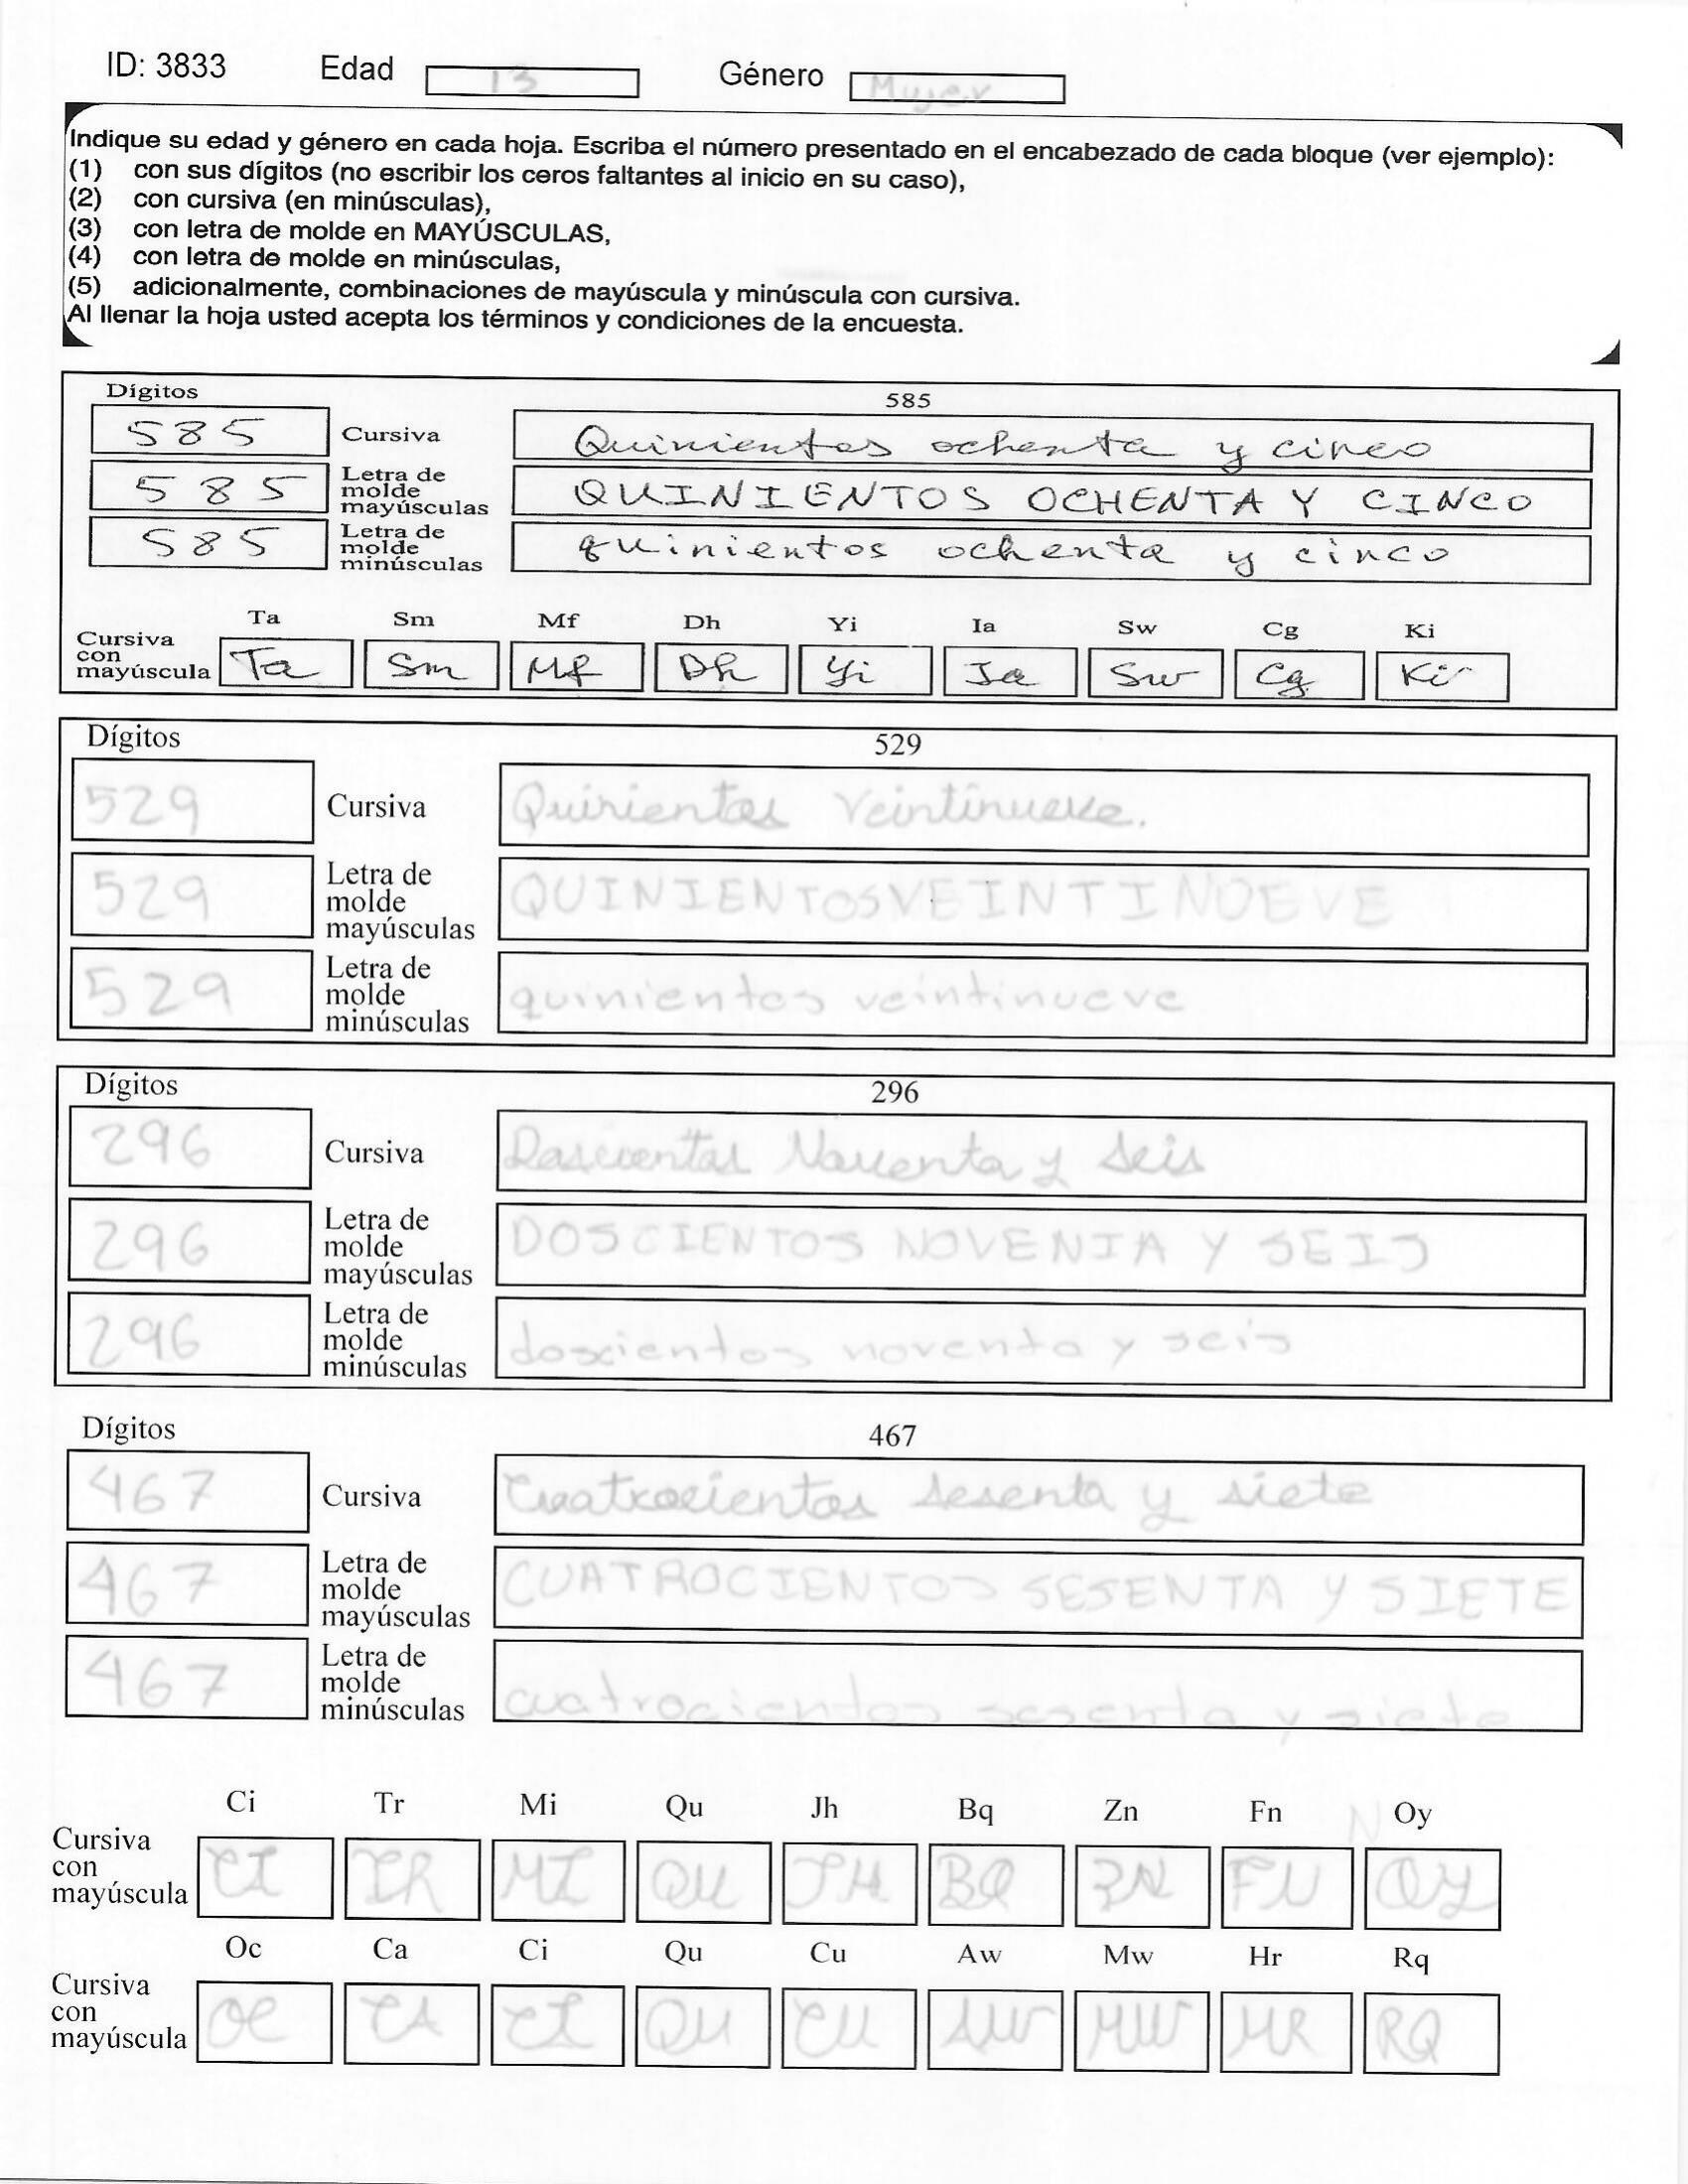 ID: 3833 Edad 13 Género Mujer
Indique su edad y género en cada hoja. Escriba el número presentado en el encabezado de cada bloque (ver ejemplo):
(1) con sus dígitos (no escribir los ceros faltantes al inicio en su caso),
(2) con cursiva (en minúsculas),
(3) con letra de molde en MAYÚSCULAS,
(4) con letra de molde en minúsculas,
(5) adicionalmente, combinaciones de mayúscula y minúscula con cursiva.
Al llenar la hoja usted acepta los términos y condiciones de la encuesta.
Dígitos 585
585 Cursiva Quinientos ochenta y cinco
585 Letra de molde mayúsculas QUINIENTOS OCHENTA Y CINCO
585 Letra de molde minúsculas quinientos ochenta y cinco
Ta Sm Mf Dh Yi Ia Sw Cg Ki
Cursiva con mayúscula Ta Sm Mf Dh Yi Ia Sw Cg Ki
Dígitos 529
529 Cursiva Quinientos Veintinueve.
529 Letra de molde mayúsculas QUINIENTOS VEINTINUEVE
529 Letra de molde minúsculas quinientos veintinueve
Dígitos 296
296 Cursiva Doscientos Noventa y seis
296 Letra de molde mayúsculas DOSCIENTOS NOVENTA Y SEIS
296 Letra de molde minúsculas doscientos noventa y seis
Dígitos 467
467 Cursiva Cuatrocientos sesenta y siete
467 Letra de molde mayúsculas CUATROCIENTOS SESENTA Y SIETE
467 Letra de molde minúsculas cuatrocientos sesenta y siete
Ci Tr Mi Qu Jh Bq Zn Fn N Oy
Cursiva con mayúscula CI TR MI QU JH BQ ZN FN OY
Oc Ca Ci Qu Cu Aw Mw Hr Rq
Cursiva con mayúscula OC CA CI QU CU AW MW HR RQ